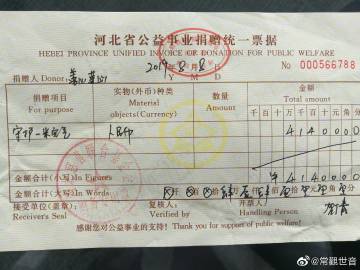 河北省公益事业捐赠统一票据
HEBEI PROVINCE UNIFIED INVOICE OF DONATION FOR PUBLIC WELFARE
2019年8月8日
Y M D
No 000566788
捐赠人Donor:
捐赠项目 For purpose
实物(外币)种类 Material objects(Currency)
数量 Amount
金额 Total amount
千 百 十 万 千 百 十 元 角 分
人民币
4 1 4 0 0 0
金额合计(小写)In Figures
¥ 4 1 4 0 0 0
金额合计(大写)In Words
接受单位(盖章): Receiver's Seal
复核人: Verified by
开票人: Handling Person
感谢您对公益事业的支持! Thank you for support of public welfare!
@常觀世音